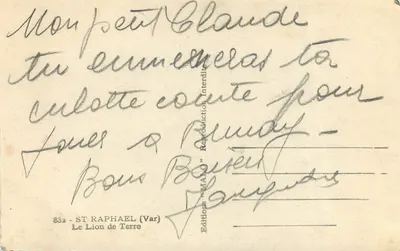 Mon petit Claude
tu emmeneras ta
culotte courte pour
jouer a
Bons Baisers
83a - ST RAPHAEL (Var)
Le Lion de Terre
Edition "MAR" Reproduction Interdite